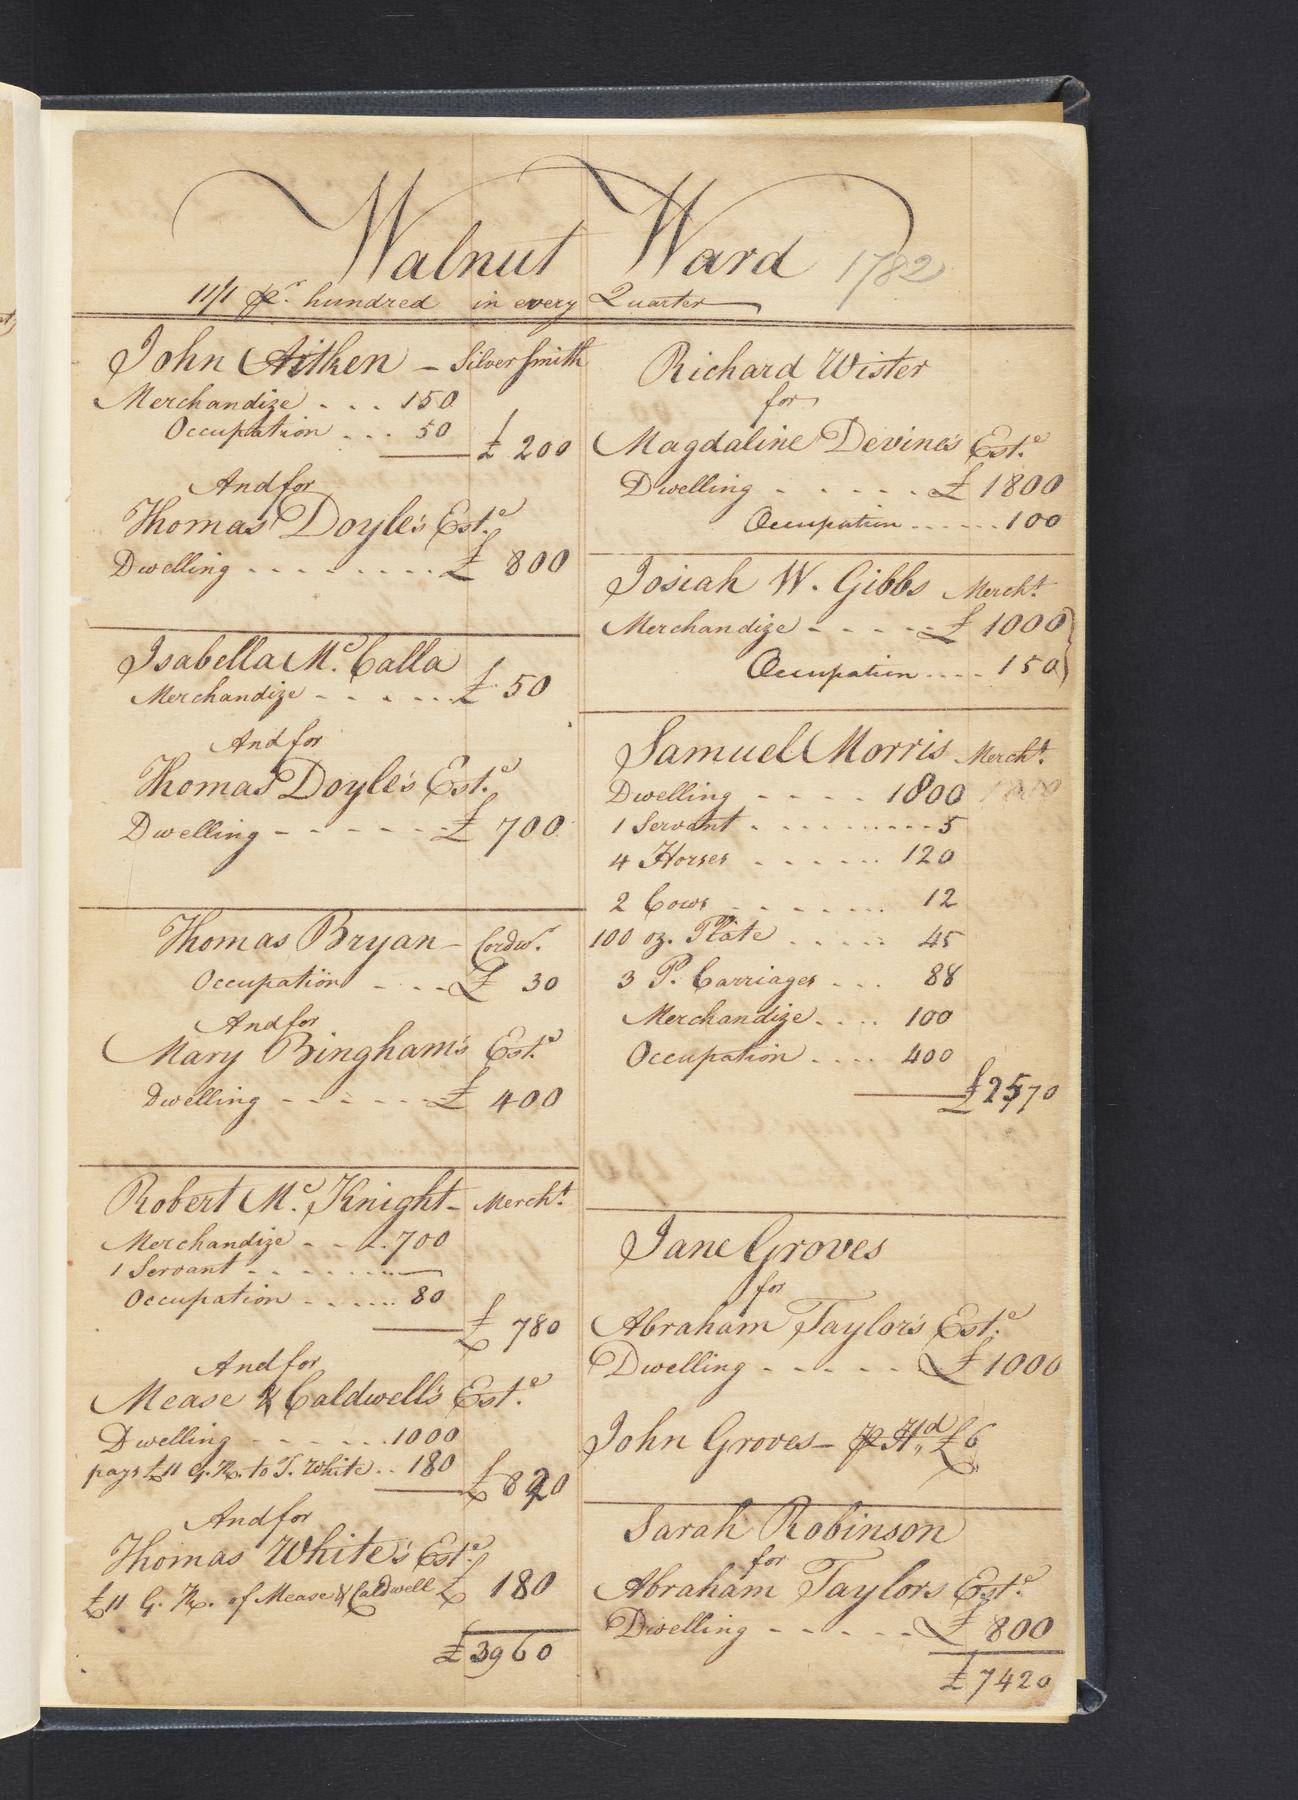 Walnut Ward 1782
11/1 pr. hundred in every Quarter
John Aitken - Silver Smith
Merchandize . . . 150
Occupation . . . 50
£ 200
And for
Thomas Doyle's Est.e
Dwelling . . . . . . . . . £ 800
Isabella Mc. Calla
Merchandize - - - - . . £ 50
And for
Thomas Doyle's Est.e
Dwelling - - - - - - - £ 700
Thomas Bryan - Cordwr.
Occupation - . . - £ 30
And for
Mary Bingham's Est.e
Dwelling - - - - - - - £ 400
Robert Mc. Knight - Mercht.
Merchandize - - . . 700
1 Servant - - - - . . . . —
Occupation . . . . . . 80
£ 780
And for
Mease & Caldwell's Est.e
Dwelling - - - - . . 1000
pays £11 G. R. to T. White . . 180
£ 820
And for
Thomas White's Est.e
£11 G. R. of Mease & Caldwell £ 180
£ 3960
Richard Wister
for
Magdaline Devine's Est.e
Dwelling - - - - - . £ 1800
Occupation . . . . . . . 100
Josiah W. Gibbs Mercht.
Merchandize - - - - - £ 1000
Occupation . . . . 150
Samuel Morris Mercht.
Dwelling - - - - 1800
1 Servant . . . . . . . . . . - 5
4 Horses . . . . . . . 120
2 Cows - . . . . . . . 12
100 oz. Plate . . . . . 45
3 P. Carriages . . . 88
Merchandize . . . . 100
Occupation . . . . 400
£ 2570
Jane Groves
for
Abraham Taylor's Est.e
Dwelling - - - - - £ 1000
John Groves - pr Hd. £6
Sarah Robinson
for
Abraham Taylors Est.e
Dwelling - - - - - £ 800
£ 7420